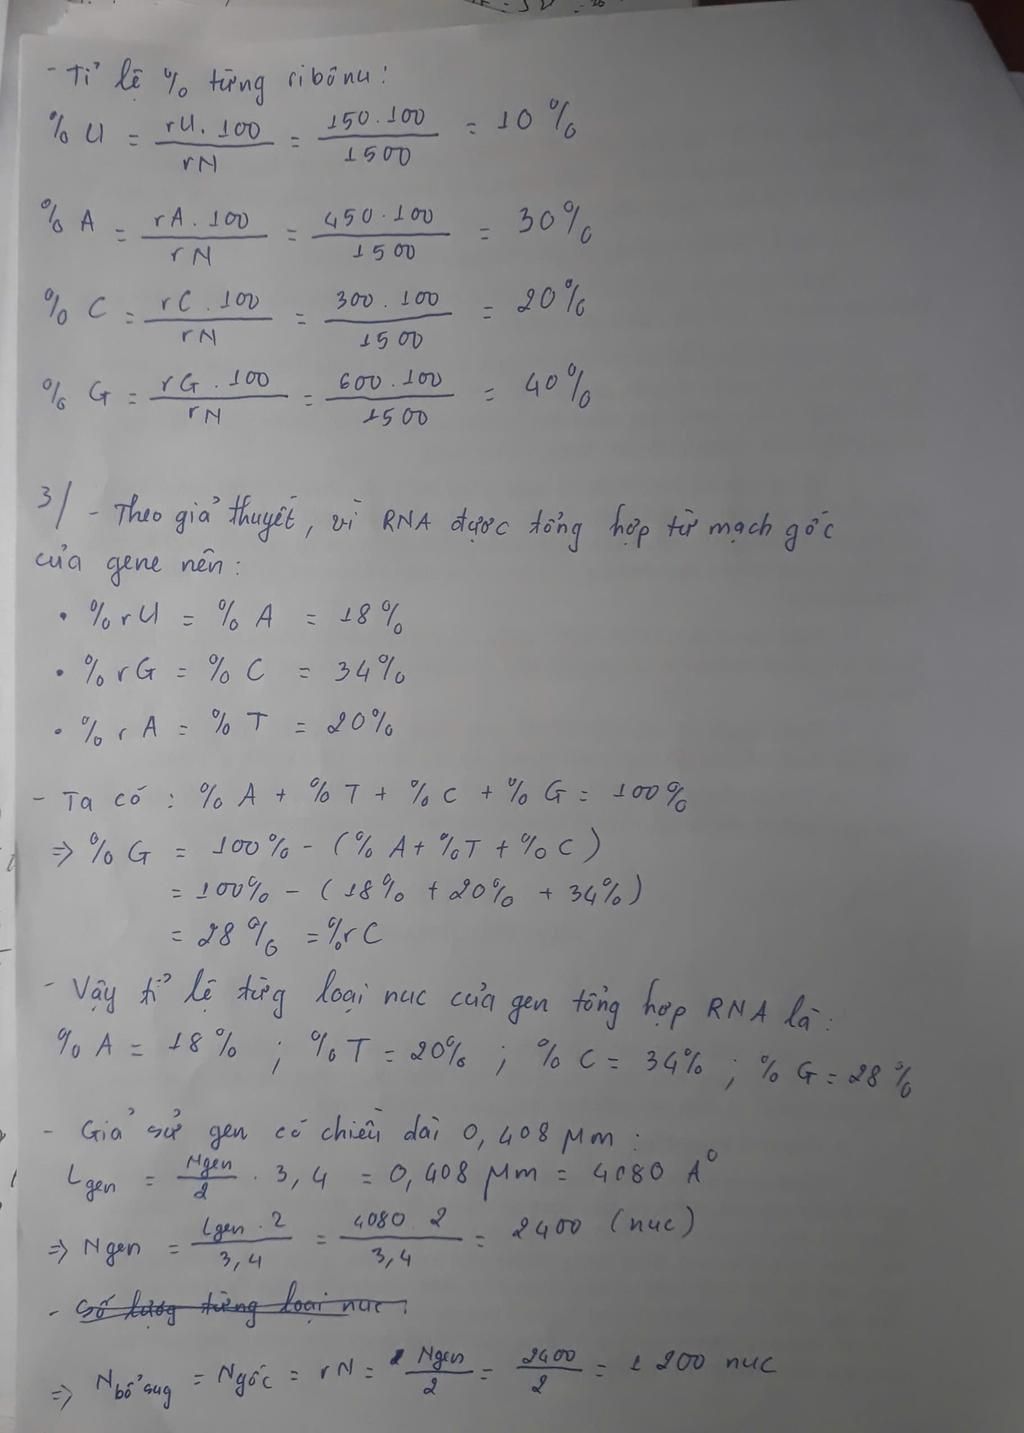 - Tỉ lệ % từng ribônu:
% U = rU. 100 / rN = 150. 100 / 1500 = 10 %
% A = rA. 100 / rN = 450. 100 / 1500 = 30%
% C = rC. 100 / rN = 300. 100 / 1500 = 20%
% G = rG. 100 / rN = 600. 100 / 1500 = 40%
3/ - Theo giả thuyết, vì RNA được tổng hợp từ mạch gốc
của gene nên:
• % rU = % A = 18%
• % rG = % C = 34%
• % rA = % T = 20%
- Ta có : % A + % T + % C + % G = 100%
=> % G = 100% - (% A + % T + % C)
= 100% - (18% + 20% + 34%)
= 28% = %rC
- Vậy tỉ lệ từng loại nuc của gen tổng hợp RNA là:
% A = 18% ; % T = 20% ; % C = 34% ; % G = 28%
- Giả sử gen có chiều dài 0,408 μm :
Lgen = Ngen / 2 . 3,4 = 0,408 μm = 4080 A°
=> Ngen = Lgen . 2 / 3,4 = 4080 . 2 / 3,4 = 2400 (nuc)
- Số lượng từng loại nuc :
=> Nbổ sung = Ngốc = rN = Ngen / 2 = 2400 / 2 = 1 200 nuc